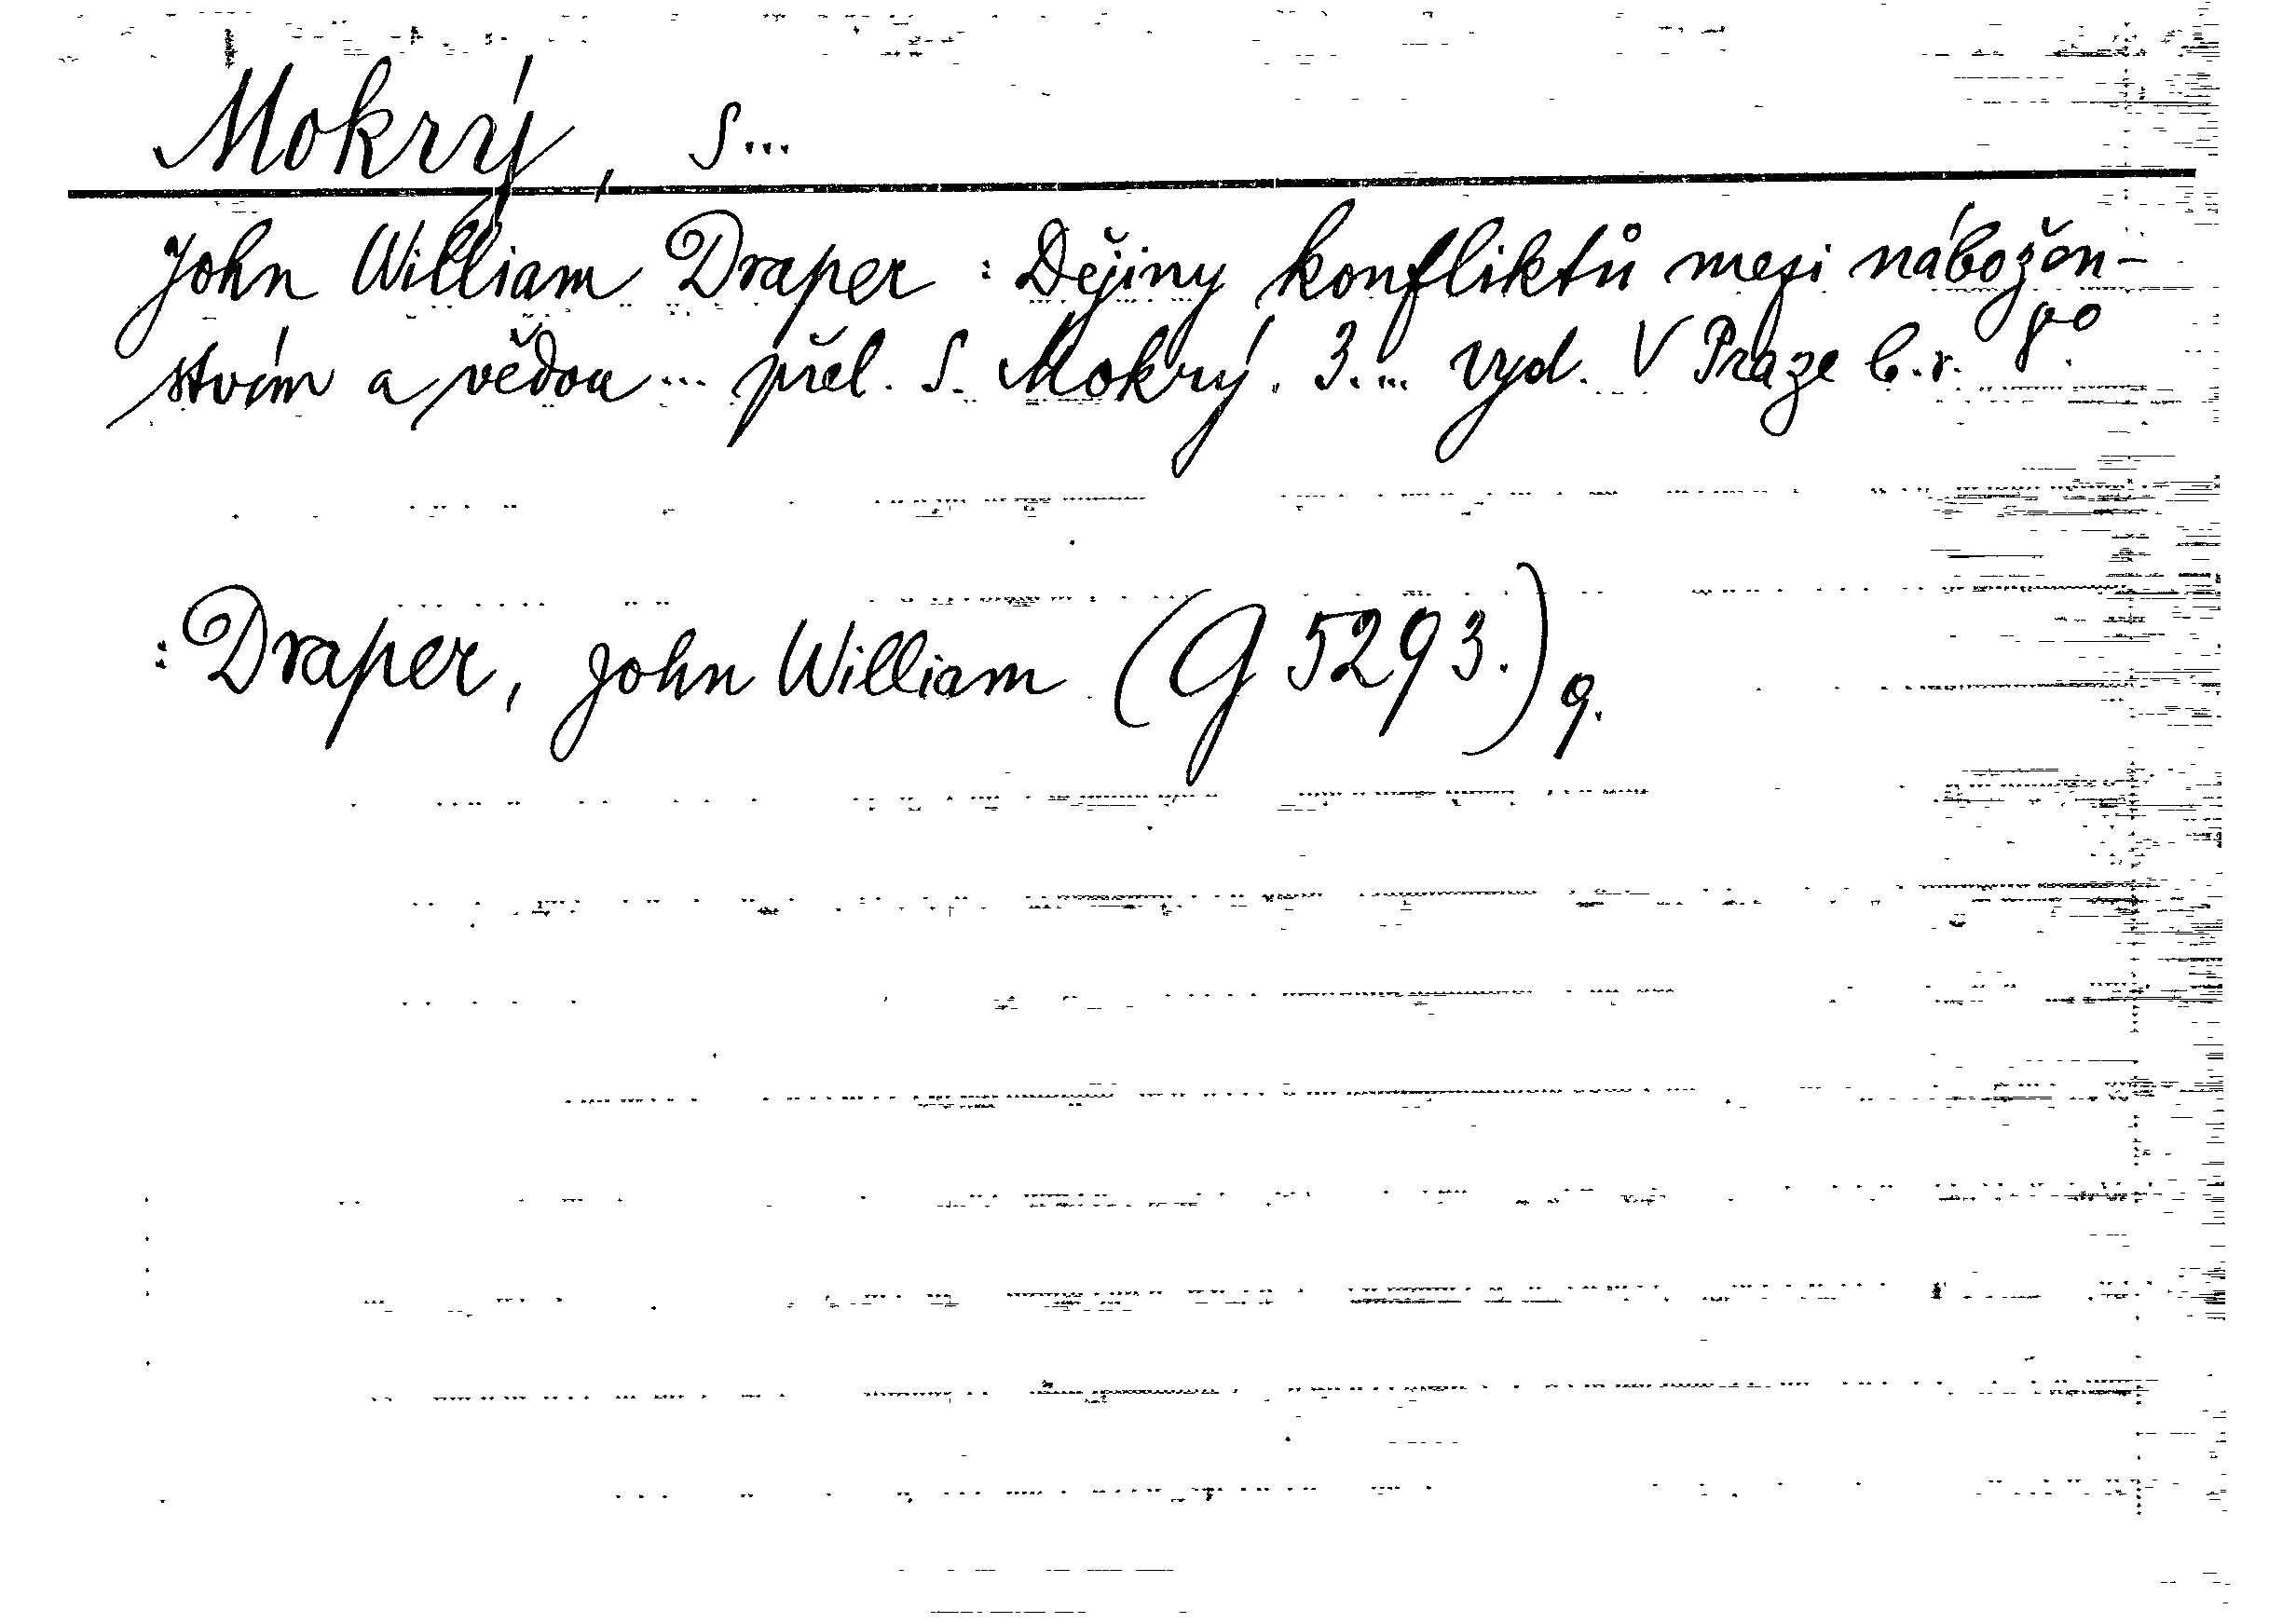 Mokrý, S...
John William Draper : Dějiny konfliktů mezi nábožen-
stvím a vědou ... přel. S. Mokrý. 3. ... vyd. V Praze b.r. 8°.
: Draper, John William (G 5293.) 9.